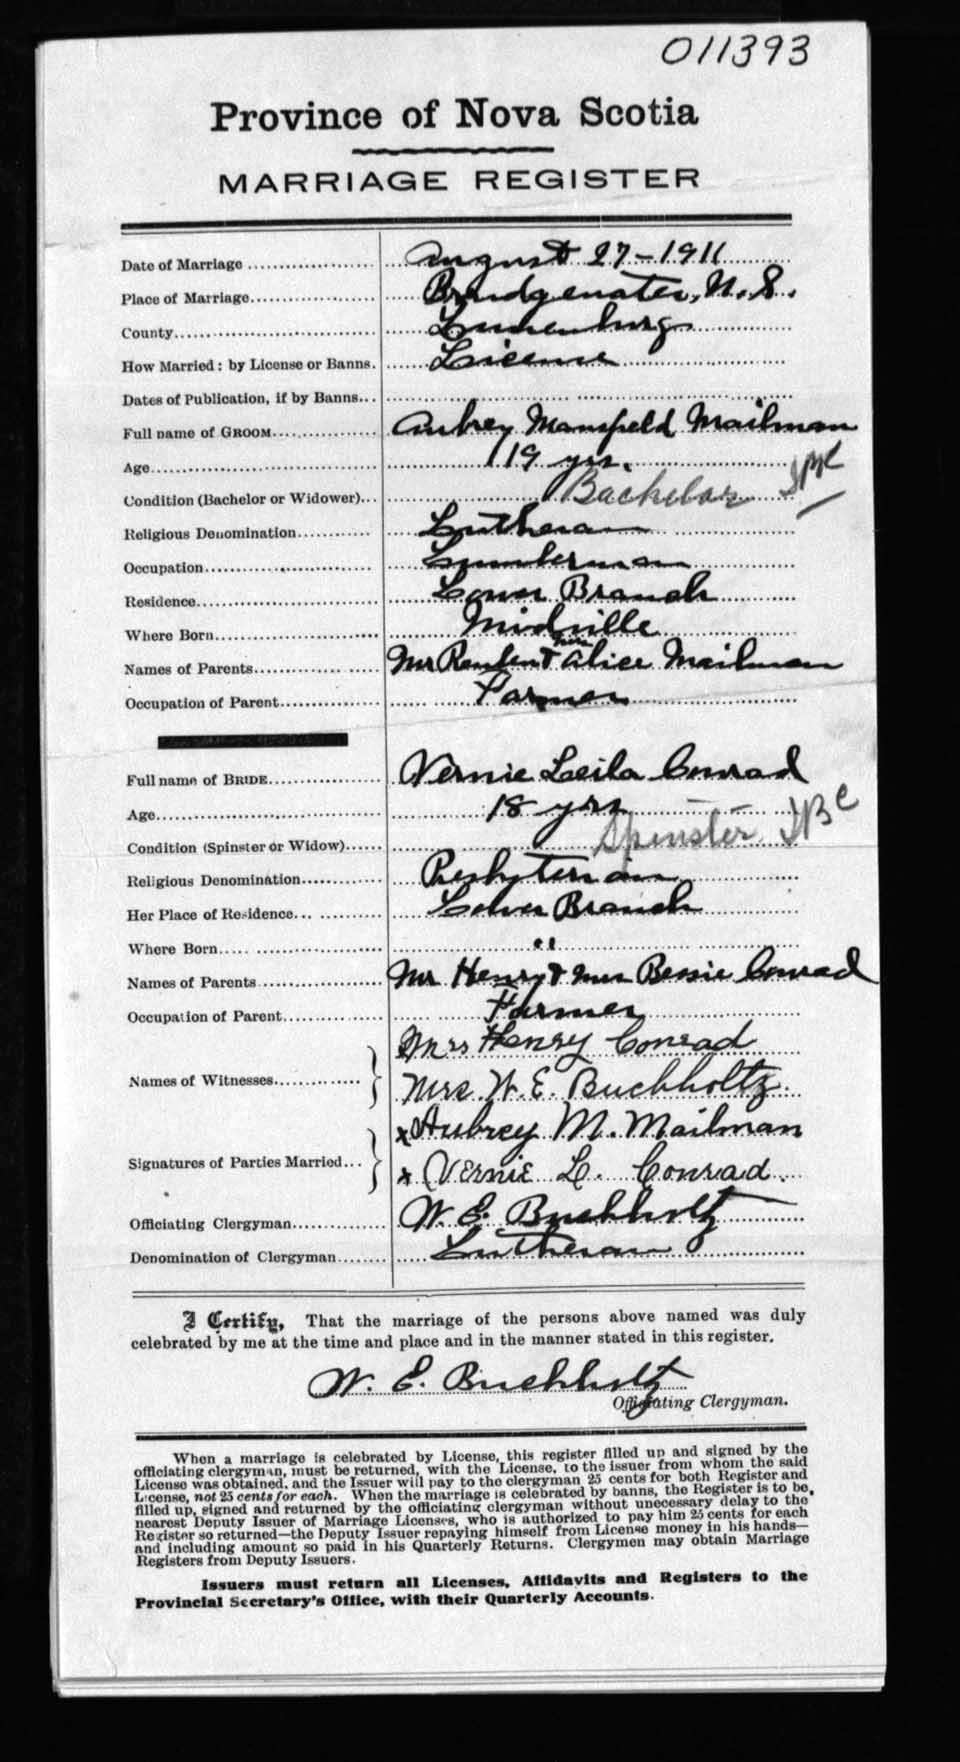 011393
Province of Nova Scotia
MARRIAGE REGISTER
Date of Marriage August 27-1911
Place of Marriage Bridgewater, N. S.
County Lunenburg
How Married: by License or Banns. License
Dates of Publication, if by Banns
Full name of GROOM Aubrey Mansfield Mailman
Age 19 yrs.
Condition (Bachelor or Widower) Bachelor
Religious Denomination Lutheran
Occupation Lumberman
Residence Lower Branch
Where Born Midville
Names of Parents Mr Reuben & Mrs Alice Mailman
Occupation of Parent Farmer
Full name of BRIDE Vernie Leila Conrad
Age 18 yrs
Condition (Spinster or Widow) Spinster
Religious Denomination Presbyterian
Her Place of Residence Lower Branch
Where Born "
Names of Parents Mr Henry & Mrs Bessie Conrad
Occupation of Parent Farmer
Mrs Henry Conrad
Names of Witnesses Mrs. W. E. Buchholtz.
x Aubrey M. Mailman
Signatures of Parties Married x Vernie L. Conrad.
Officiating Clergyman W. E. Buchholtz
Denomination of Clergyman Lutheran
I Certify, That the marriage of the persons above named was duly
celebrated by me at the time and place and in the manner stated in this register.
W. E. Buchholtz
Officiating Clergyman.
When a marriage is celebrated by License, this register filled up and signed by the
officiating clergyman, must be returned, with the License, to the issuer from whom the said
License was obtained, and the Issuer will pay to the clergyman 25 cents for both Register and
License, not 25 cents for each. When the marriage is celebrated by banns, the Register is to be,
filled up, signed and returned by the officiating clergyman without unecessary delay to the
nearest Deputy Issuer of Marriage Licenses, who is authorized to pay him 25 cents for each
Register so returned—the Deputy Issuer repaying himself from License money in his hands—
and including amount so paid in his Quarterly Returns. Clergymen may obtain Marriage
Registers from Deputy Issuers.
Issuers must return all Licenses, Affidavits and Registers to the
Provincial Secretary's Office, with their Quarterly Accounts.